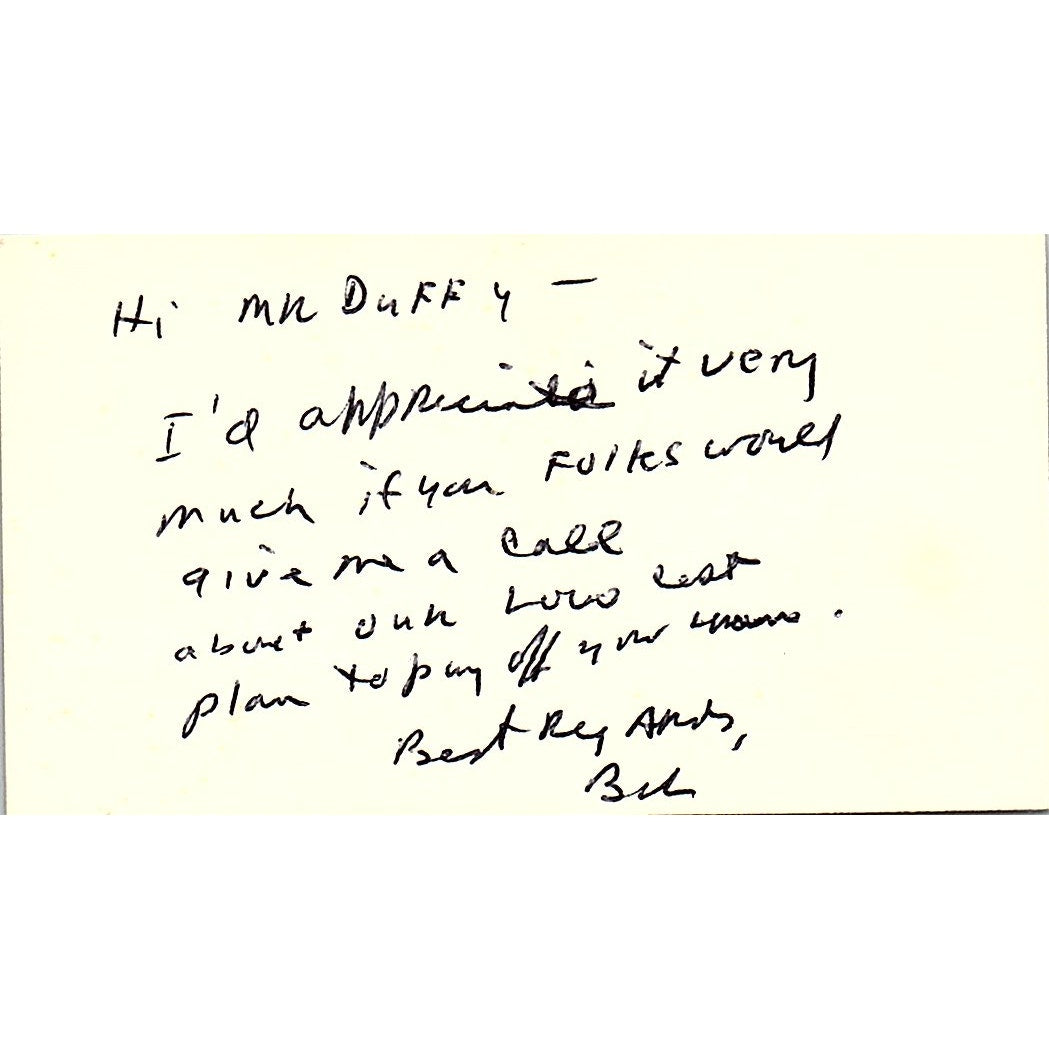 Hi MR DUFFY —
I'd appreciate it very
much if you FOlks would
give me a call
about our Low cost
plan to pay off your
Best RegARds,
Bob